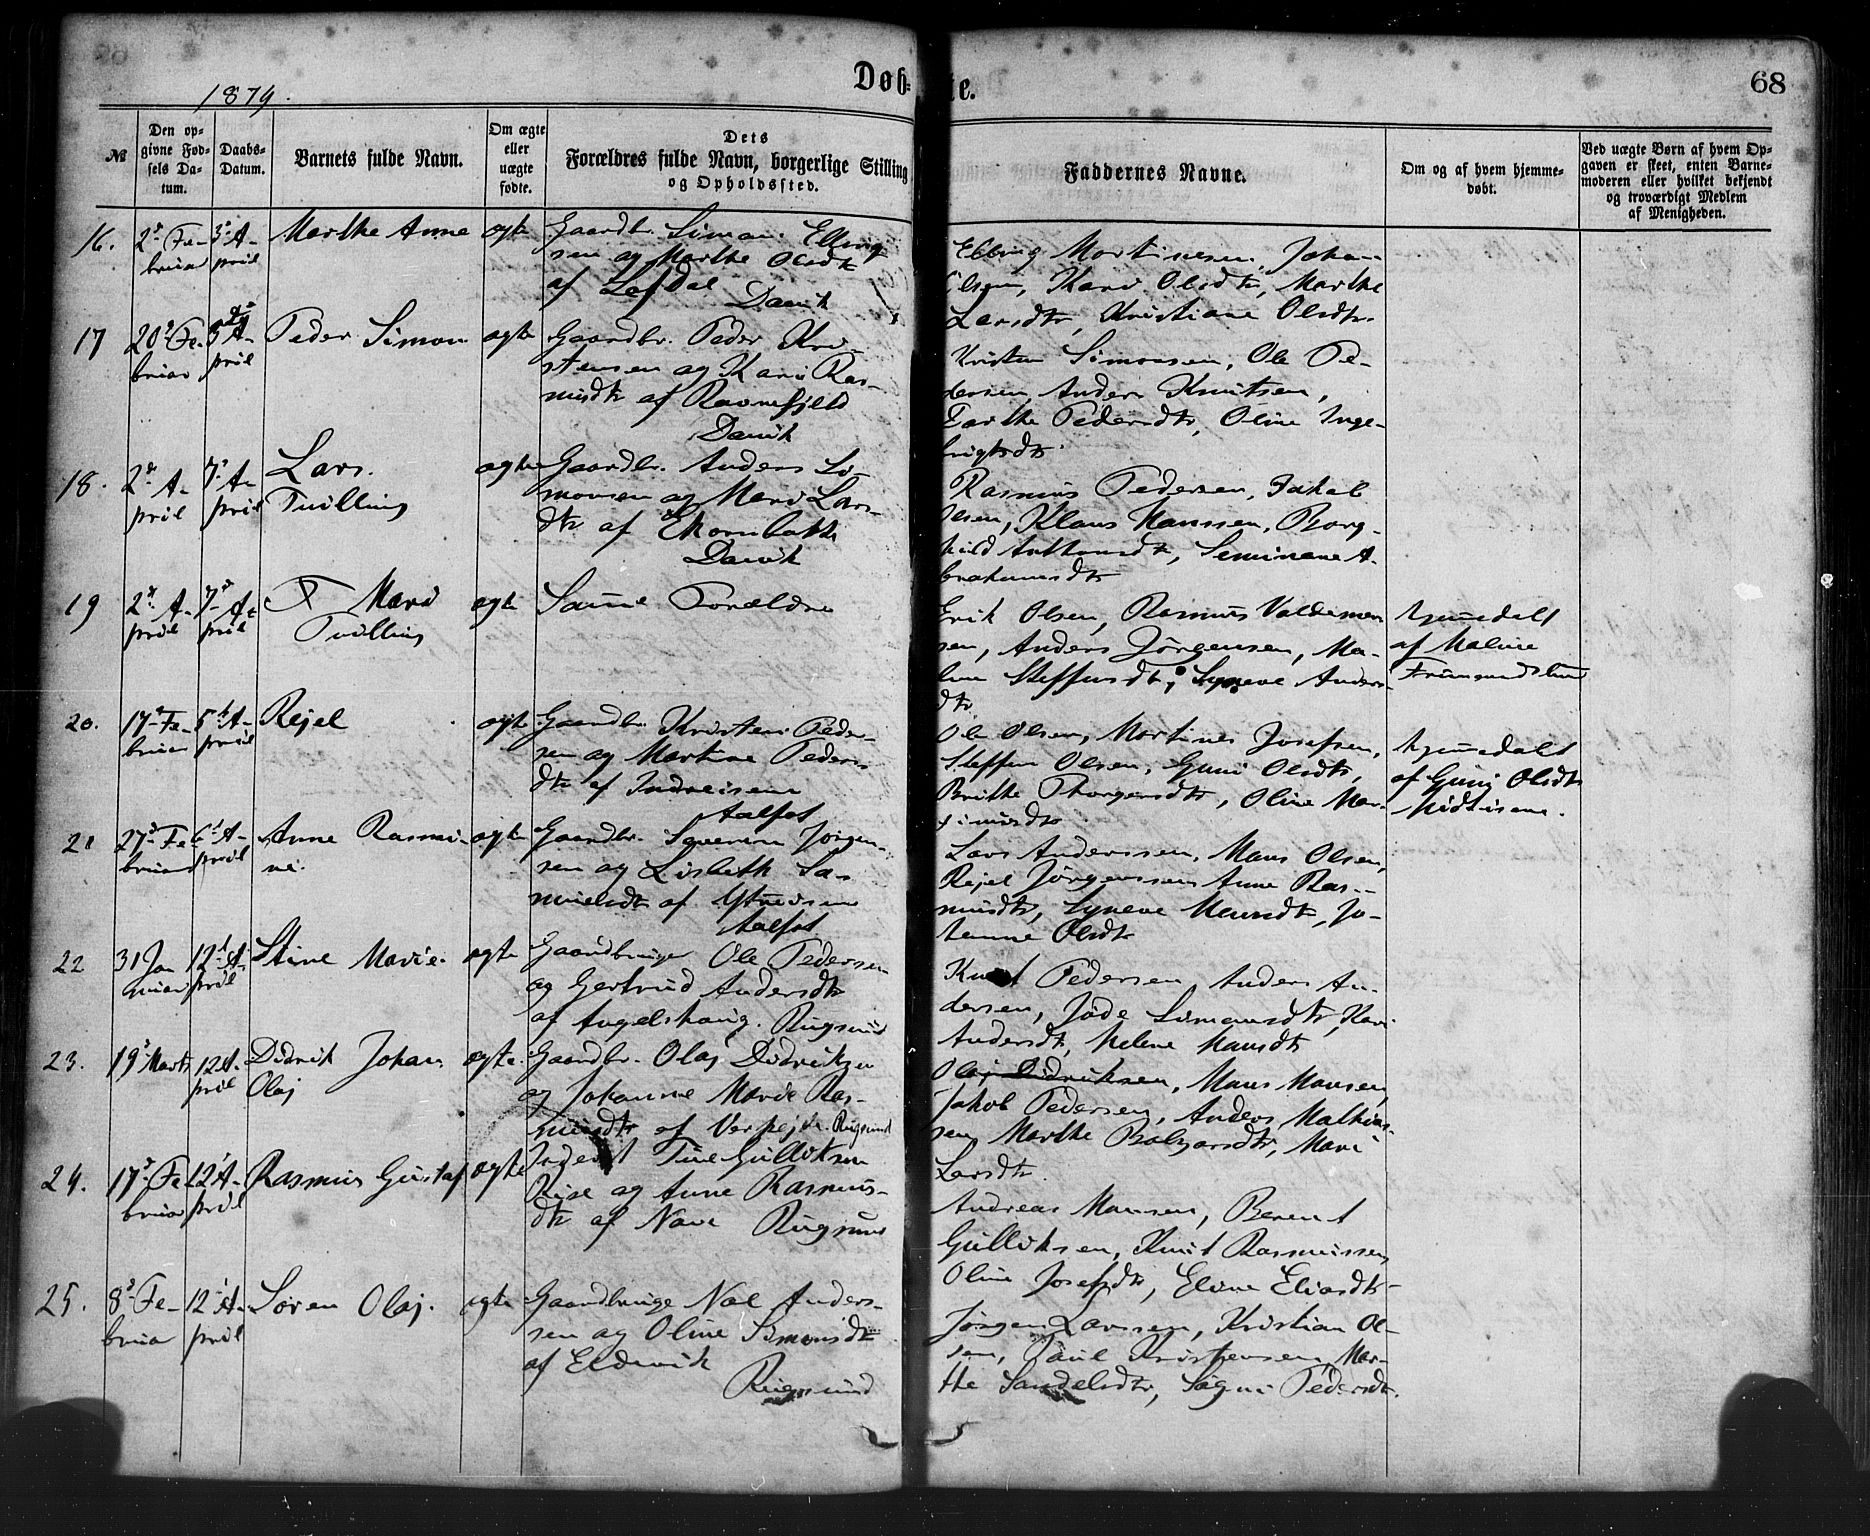 1879.
Døb-te.
68
№
Den opgivne Fødsels Datum.
Daabs-Datum.
Barnets fulde Navn.
Om ægte eller uægte fødte.
Dets Forældres fulde Navn, borgerlige Stilling og Opholdssted.
Faddernes Navne.
Om og af hvem hjemmedøbt.
Ved uægte Børn af hvem Opgaven er skeet, enten Barnemoderen eller hvilket bekjendt og troværdigt Medlem af Menigheden.
16.
2d Fe-
bruar
3d A-
pril
Marthe Anne
ægte
Gaardbr. Simon Elling
sen og Marthe Olsdtr
af Lefdal
Davik
Elling Martinesen, Johan
Olsen, Kari Olsdtr, Marthe
Larsdtr, Kristiane Olsdtr.
17
20d Fe-
bruar
3d A-
pril
Peder Simon
ægte
Gaardbr. Peder Kri-
stensen og Kari Ras-
musdtr af Ravnefjeld
Davik
Kristen Simonsen, Ole Pe-
dersen, Anders Knutsen,
Marthe Pedersdtr, Oline Inge-
brigtsdtr.
18.
2d A-
pril
7d A-
pril
Lars.
Tvilling
ægte
Gaardbr. Anders Si-
monsen og Mari Lars-
dtr af Ekornbakke
Davik
Rasmus Pedersen, Jakob
Olsen, Klaus Hanssen, Borg-
hild Anthonsdtr, Seminane A-
brahamsdtr
19
2d A-
pril
7d A-
pril
Mari
Tvilling
ægte
Samme Forældre
Erik Olsen, Rasmus Valdemar
sen, Anders Jørgensen, Ma-
lene Steffensdtr, Syneve Anders-
dtr.
hjemmedøbt
af Maline
20.
17d Fe-
bruar
5d A-
pril
Rejel
ægte
Gaardbr. Kristen Peder-
sen og Martine Peders
dtr af Indreisene
Aalfot
Ole Olsen, Martines Josefsen,
Steffen Olsen, Guni Olsdtr,
Brithe Thorgersdtr, Oline Mar-
hjemmedøbt
af Guni Olsdtr
Midtisene.
21
27d Fe-
bruar
6d A-
pril
Anne Rasmi-
ne.
ægte
Gaardbr. Severin Jørgen-
sen og Lisbeth Sa-
muelsdtr af Ytreisene
Aalfot
Lars Anderssen, Mons Olsen,
Rejel Jørgenssen, Anne Ras-
musdtr, Syneve Monsdtr, Jo-
hanne Olsdtr
22
31 Jan
uar
12d A-
pril
Stine Marie.
ægte
Gaardbruger Ole Pedersen
og Gertrud Andersdtr
af Angelshaug. Rugsund
Knut Pedersen, Anders An-
dersen, Jøde Simonsdtr, Kari
Andersdtr, Helene Hansdtr
23.
19d Marts
12 A-
pril
Didrik Johan
Olaj
ægte
Gaardbr. Olaj Didriksen
og Johanne Marie Ras-
musdtr af Verpejde. Rugsund
Olaj Didriksen, Mons Monsen,
Jakob Pedersen, Anders Mathias-
sen, Marthe Balzarsdtr, Mari
Larsdtr.
24.
17d Fe-
bruar
12 A-
pril
Rasmus Gustaf
ægte
Inderst Tue Gulliksen
Rise og Anne Rasmus-
dtr af Nave Rugsund
Andreas Monsen, Berent
Gulliksen, Knut Rasmussen,
Oline Josefsdtr, Eline Eliasdtr
25.
8d Fe-
bruar
12 A-
pril
Søren Olaj.
ægte
Gaardbruge Noe Anders-
sen og Oline Simonsdtr
af Eldevik
Rugsund
Jørgen Larssen, Kristian Ol-
sen, Paul Kristensen, Mar-
the Sandelsdtr, Signi Pedersdtr.